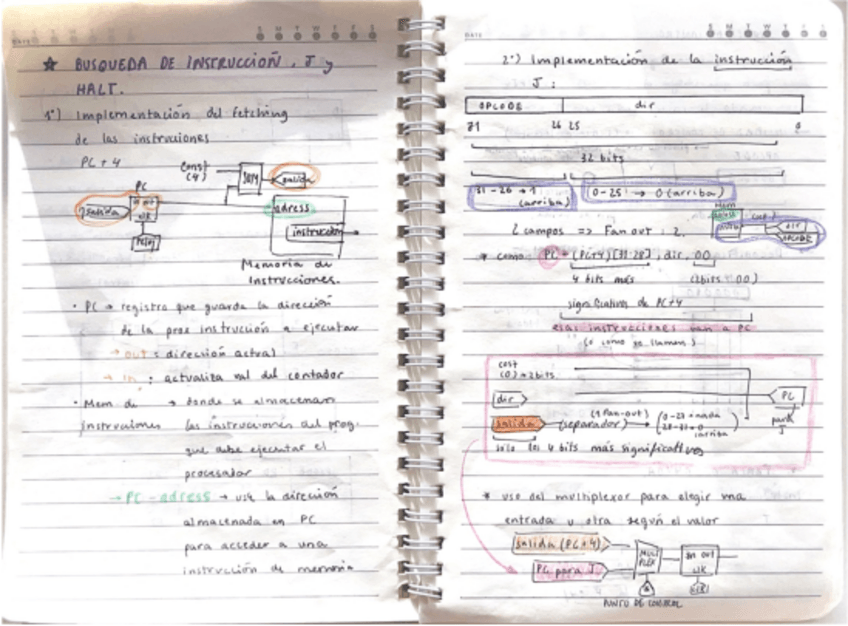 ★ BUSQUEDA DE INSTRUCCIOÑ, J y
HALT.
1º) Implementación del fetching
de las instruciones
PC + 4
Const
(4)
SUM
salida
PC
salida
in out
clk
adress
instrucción
Memoria de
Instrucciones.
• PC → registro que guarda la dirección
de la prox instrucción a ejecutar
→ out : dirección actual
→ in : actualiza val del contador
• Mem de → donde se almacenan
instruciones las instrucciones del prog.
que debe ejecutar el
procesador
→ PC - adress → usa la dirección
almacenada en PC
para acceder a una
instrucción de memoria
2º) Implementación de la instrucción
J :
OPCODE dir
31 26 25 0
32 bits
31 - 26 → 1
(arriba)
0-25 → 0 (arriba)
dir
OPCODE
2 campos => Fan out : 2.
* como PC = (PC+4)[31-28] , dir, 00
4 bits más (2bits 00)
significativos de PC+4
esas instrucciones van a PC
(o como se llamen)
cost
(0) → 2bits
dir
PC
para
J
salida → (separador) → (0-27 → nada
(1 Fan-out) 28-31 → 0
arriba)
solo los 4 bits más significativos
* uso del multiplexor para elegir una
entrada u otra según el valor
salida (PC+4)
PC para J
MULTI
PLEX
in out
clk
PUNTO DE CONTROL